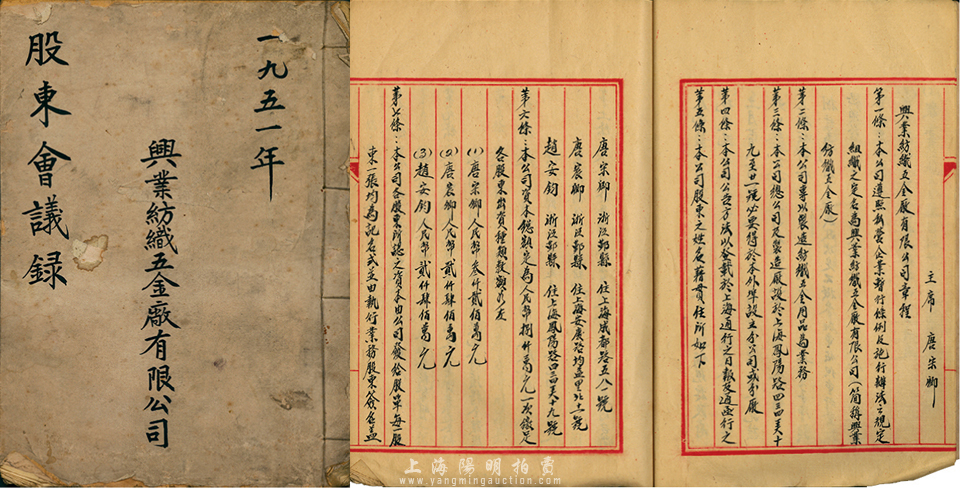 一九五一年
興業紡織五金廠有限公司
股東會議録
主席 唐宗卿
興業紡織五金廠有限公司章程
第一條：本公司遵照私營企業暫行條例及施行辦法之規定
組織之定名為興業紡織五金廠有限公司（简稱興業
紡織五金廠）
第二條：本公司專以製造紡織五金用品為業務
第三條：本公司總公司及製造廠設於上海鳳陽路四三四弄十
九至廿一號必要得於本外埠設立分公司或分廠
第四條：本公司公告方法以登載於上海通行之日報及通函行之
第五條：本公司股東之姓名籍貫住所如下
唐宗卿 浙江鄞縣 住上海成都路五八一號
唐宸卿 浙江鄞縣 住上海安慶路均益里廿十二號
趙安鈞 浙江鄞縣 住上海鳳陽路四三四弄十九號
第六條：本公司資本總額定為人民幣捌仟萬元一次繳足
各股東出資種類數額如左
(1)唐宗卿人民幣叁仟貳佰萬元
(2)唐宸卿人民幣貳仟肆佰萬元
(3)趙安鈞人民幣貳仟肆佰萬元
第七條：本公司各股東所認之資本由公司發給股單每一股
東一張均為記名式並由執行業務股東簽名蓋
上海陽明拍賣
www.yangmingauction.com